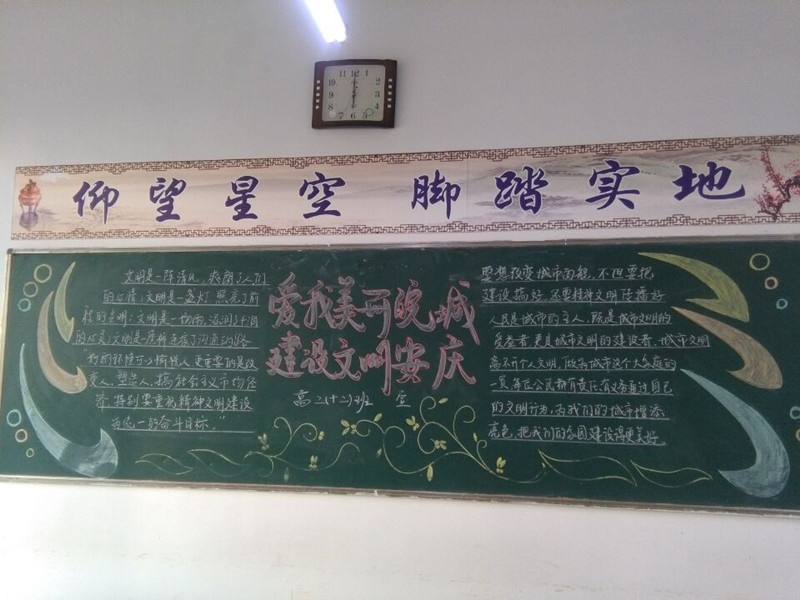 仰望星空 脚踏实地
爱我美可皖城
建设文明安庆
高二(十二)班 宣
文明是一阵清风,爽朗了人们
的心情;文明是一盏灯,照亮了前
程的
文明是一场雨,滋润了干涸
的心灵;文明是座桥
沟通的路
更重要的是改
变人,塑造人,搞社会主义市场经
济,特别要重视精神文明建设
奋斗目标。”
要想改变城市面貌,不但要把
建设搞好,还要精神文明传播好
人民是城市的主人,既是城市文明的
受益者,更是城市文明的建设者,城市文明
离不开个人文明,做为城市这个大家庭的
一员,每位公民都有责任有义务通过自己
的文明行为,为我们的城市增添
亮色,把我们的家园建设得更美好。